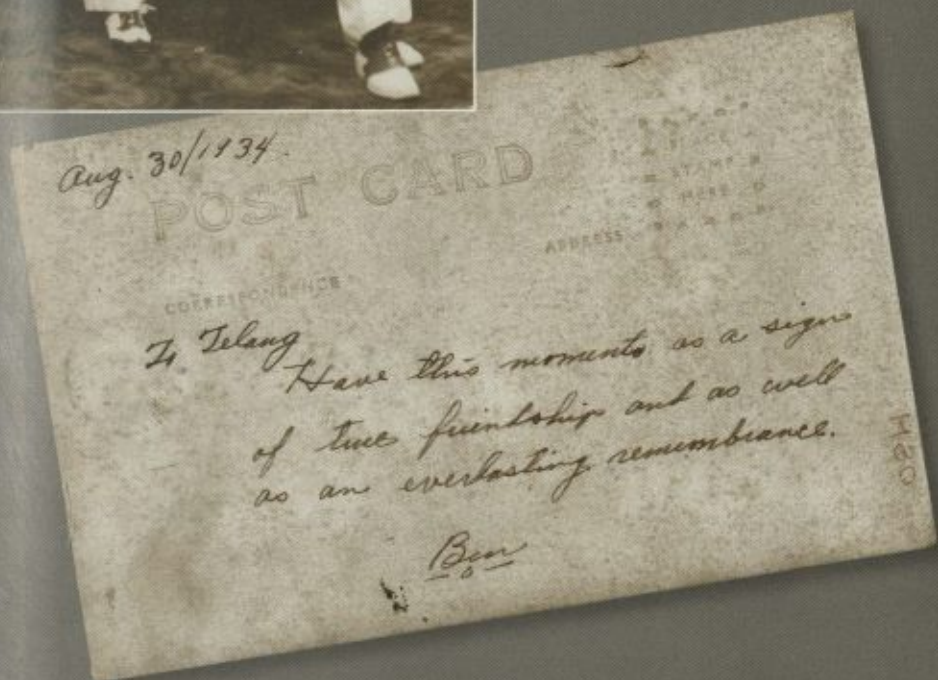 Aug. 30/1934.
POST CARD
PLACE
STAMP
HERE
CORRESPONDENCE
ADDRESS
To Telang
Have this momento as a sign
of true friendship and as well
as an everlasting remembrance.
Ben